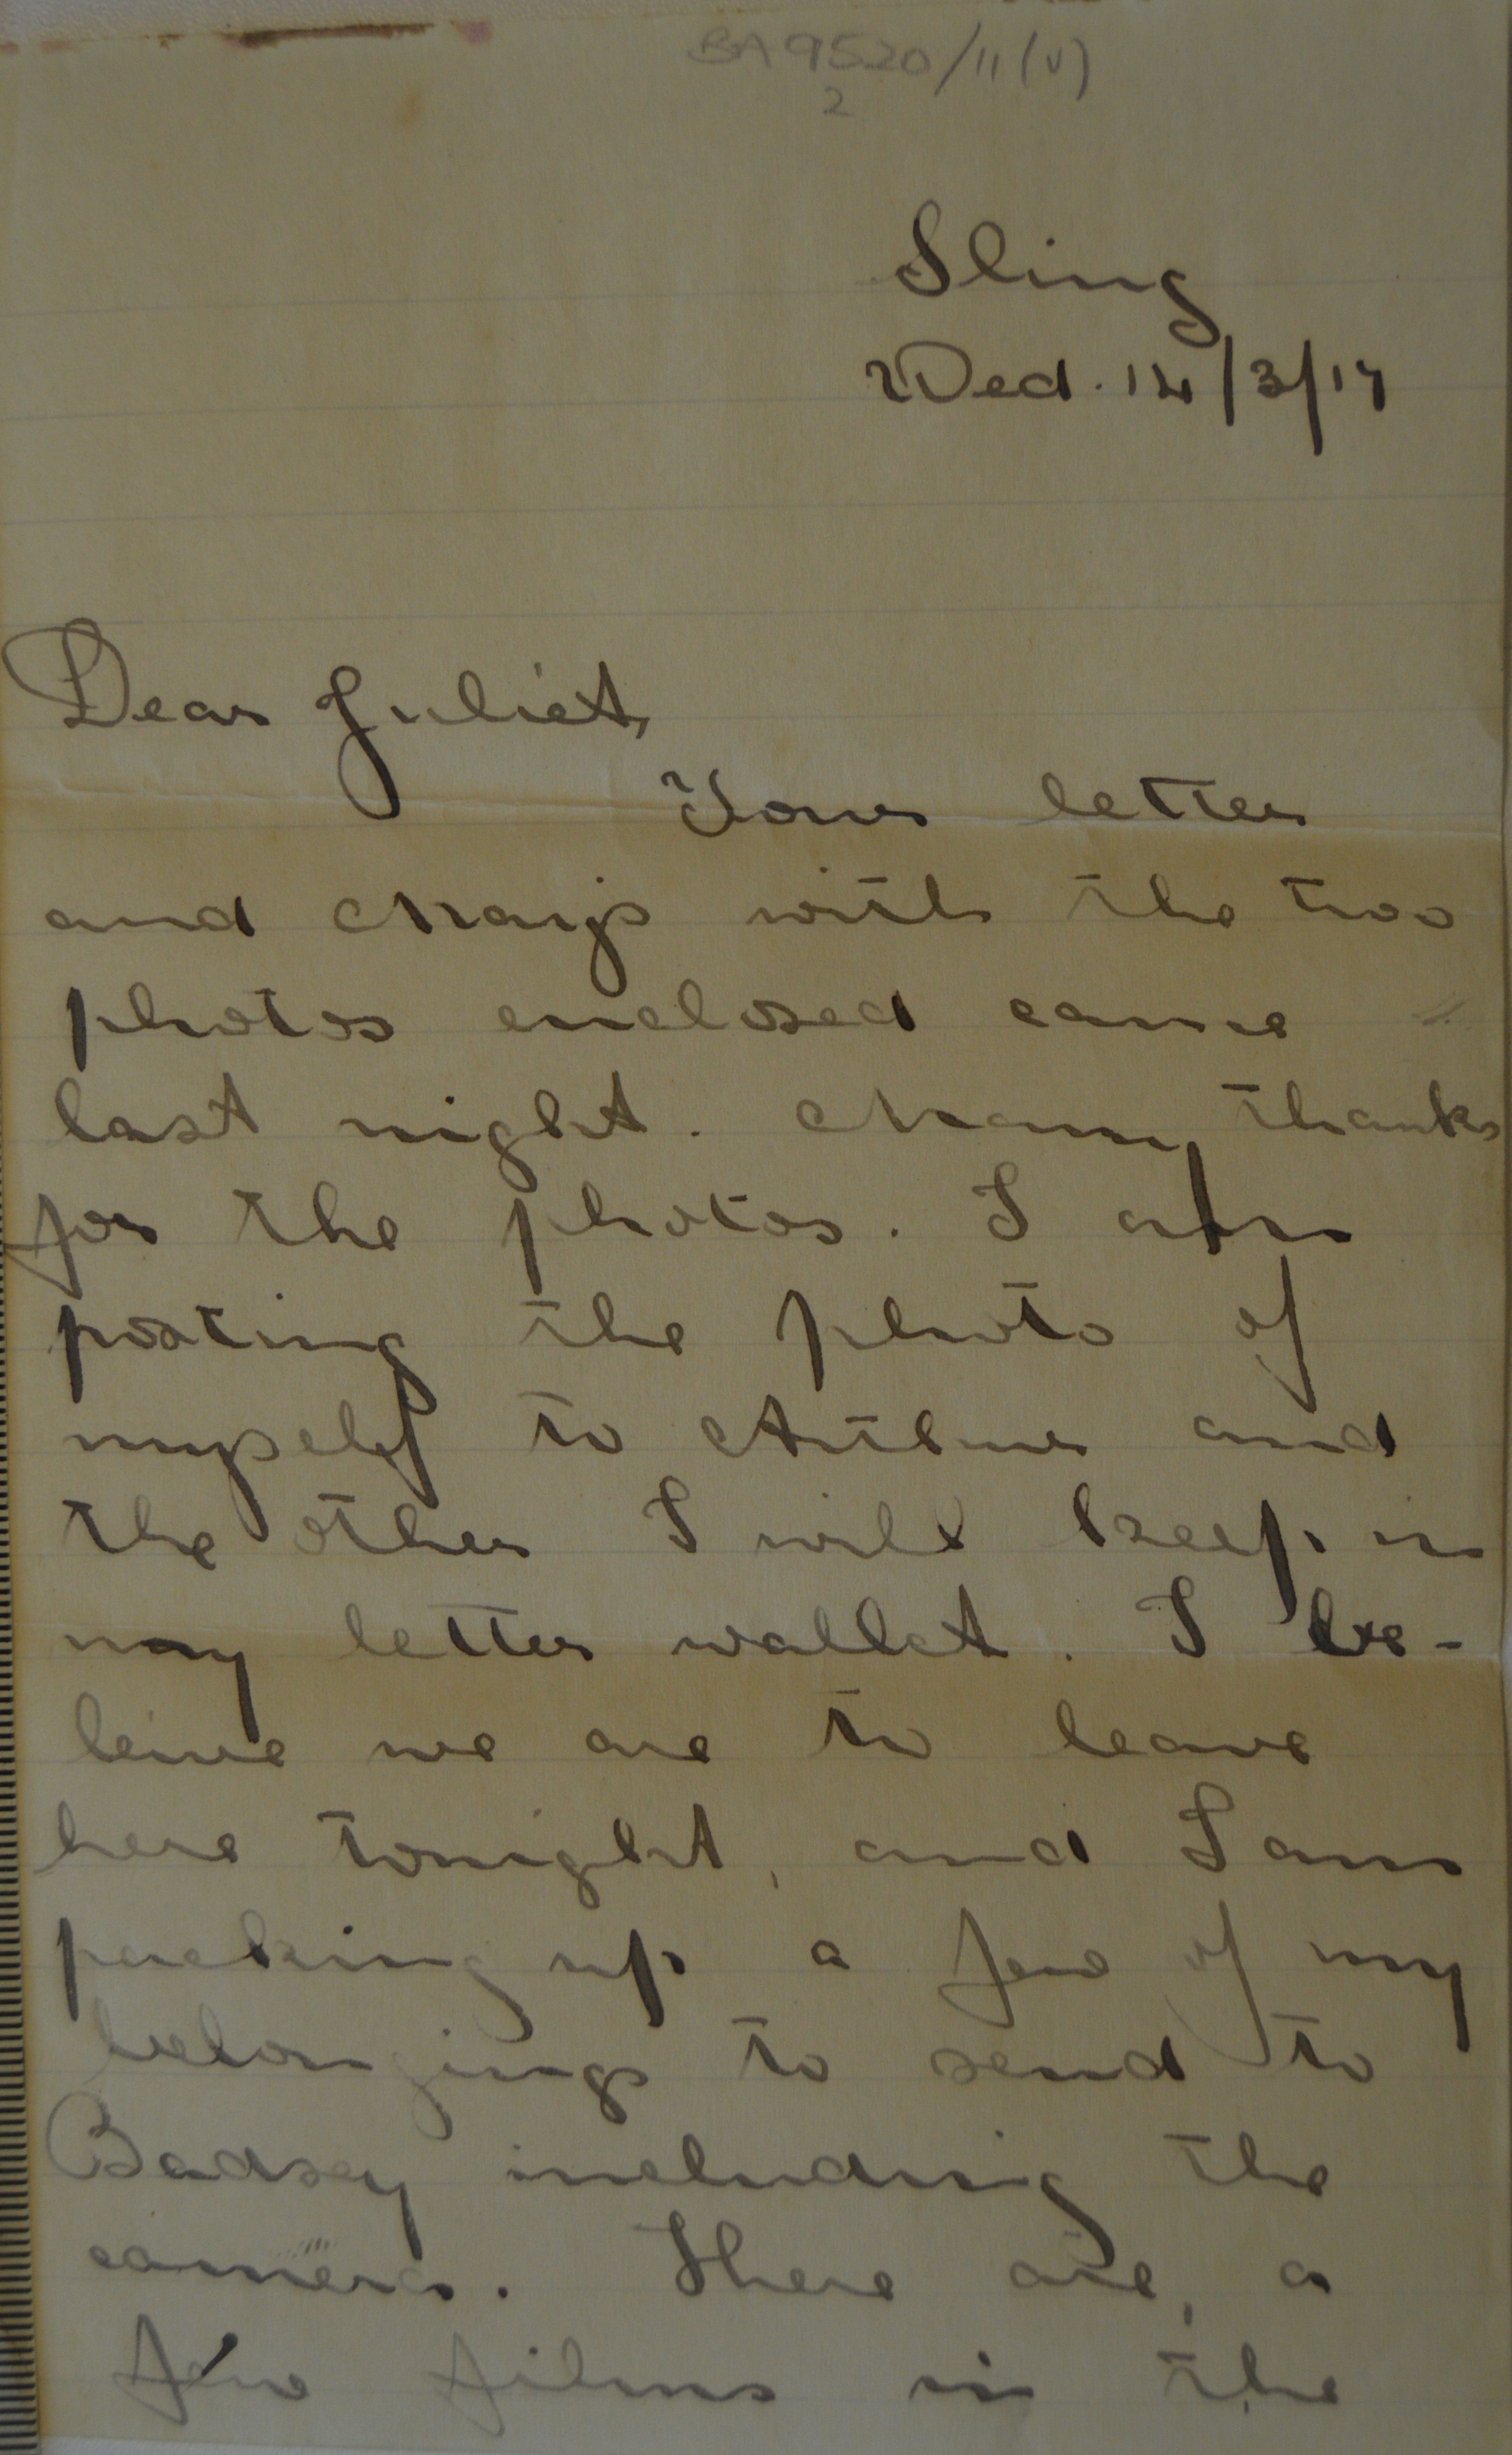 BA 9520/11(V)
2
Sling
Wed. 14/3/17
Dear Juliet,
Your letter
and Mays with the two
photos enclosed came
last night. Many thanks
for the photos. I am
posting the photo of
myself to Arthur and
the other I will keep in
my letter wallet. I be-
leive we are to leave
here tonight, and I am
packing up a few of my
belongings to send to
Badsey including the
camera. There are a
few films in the